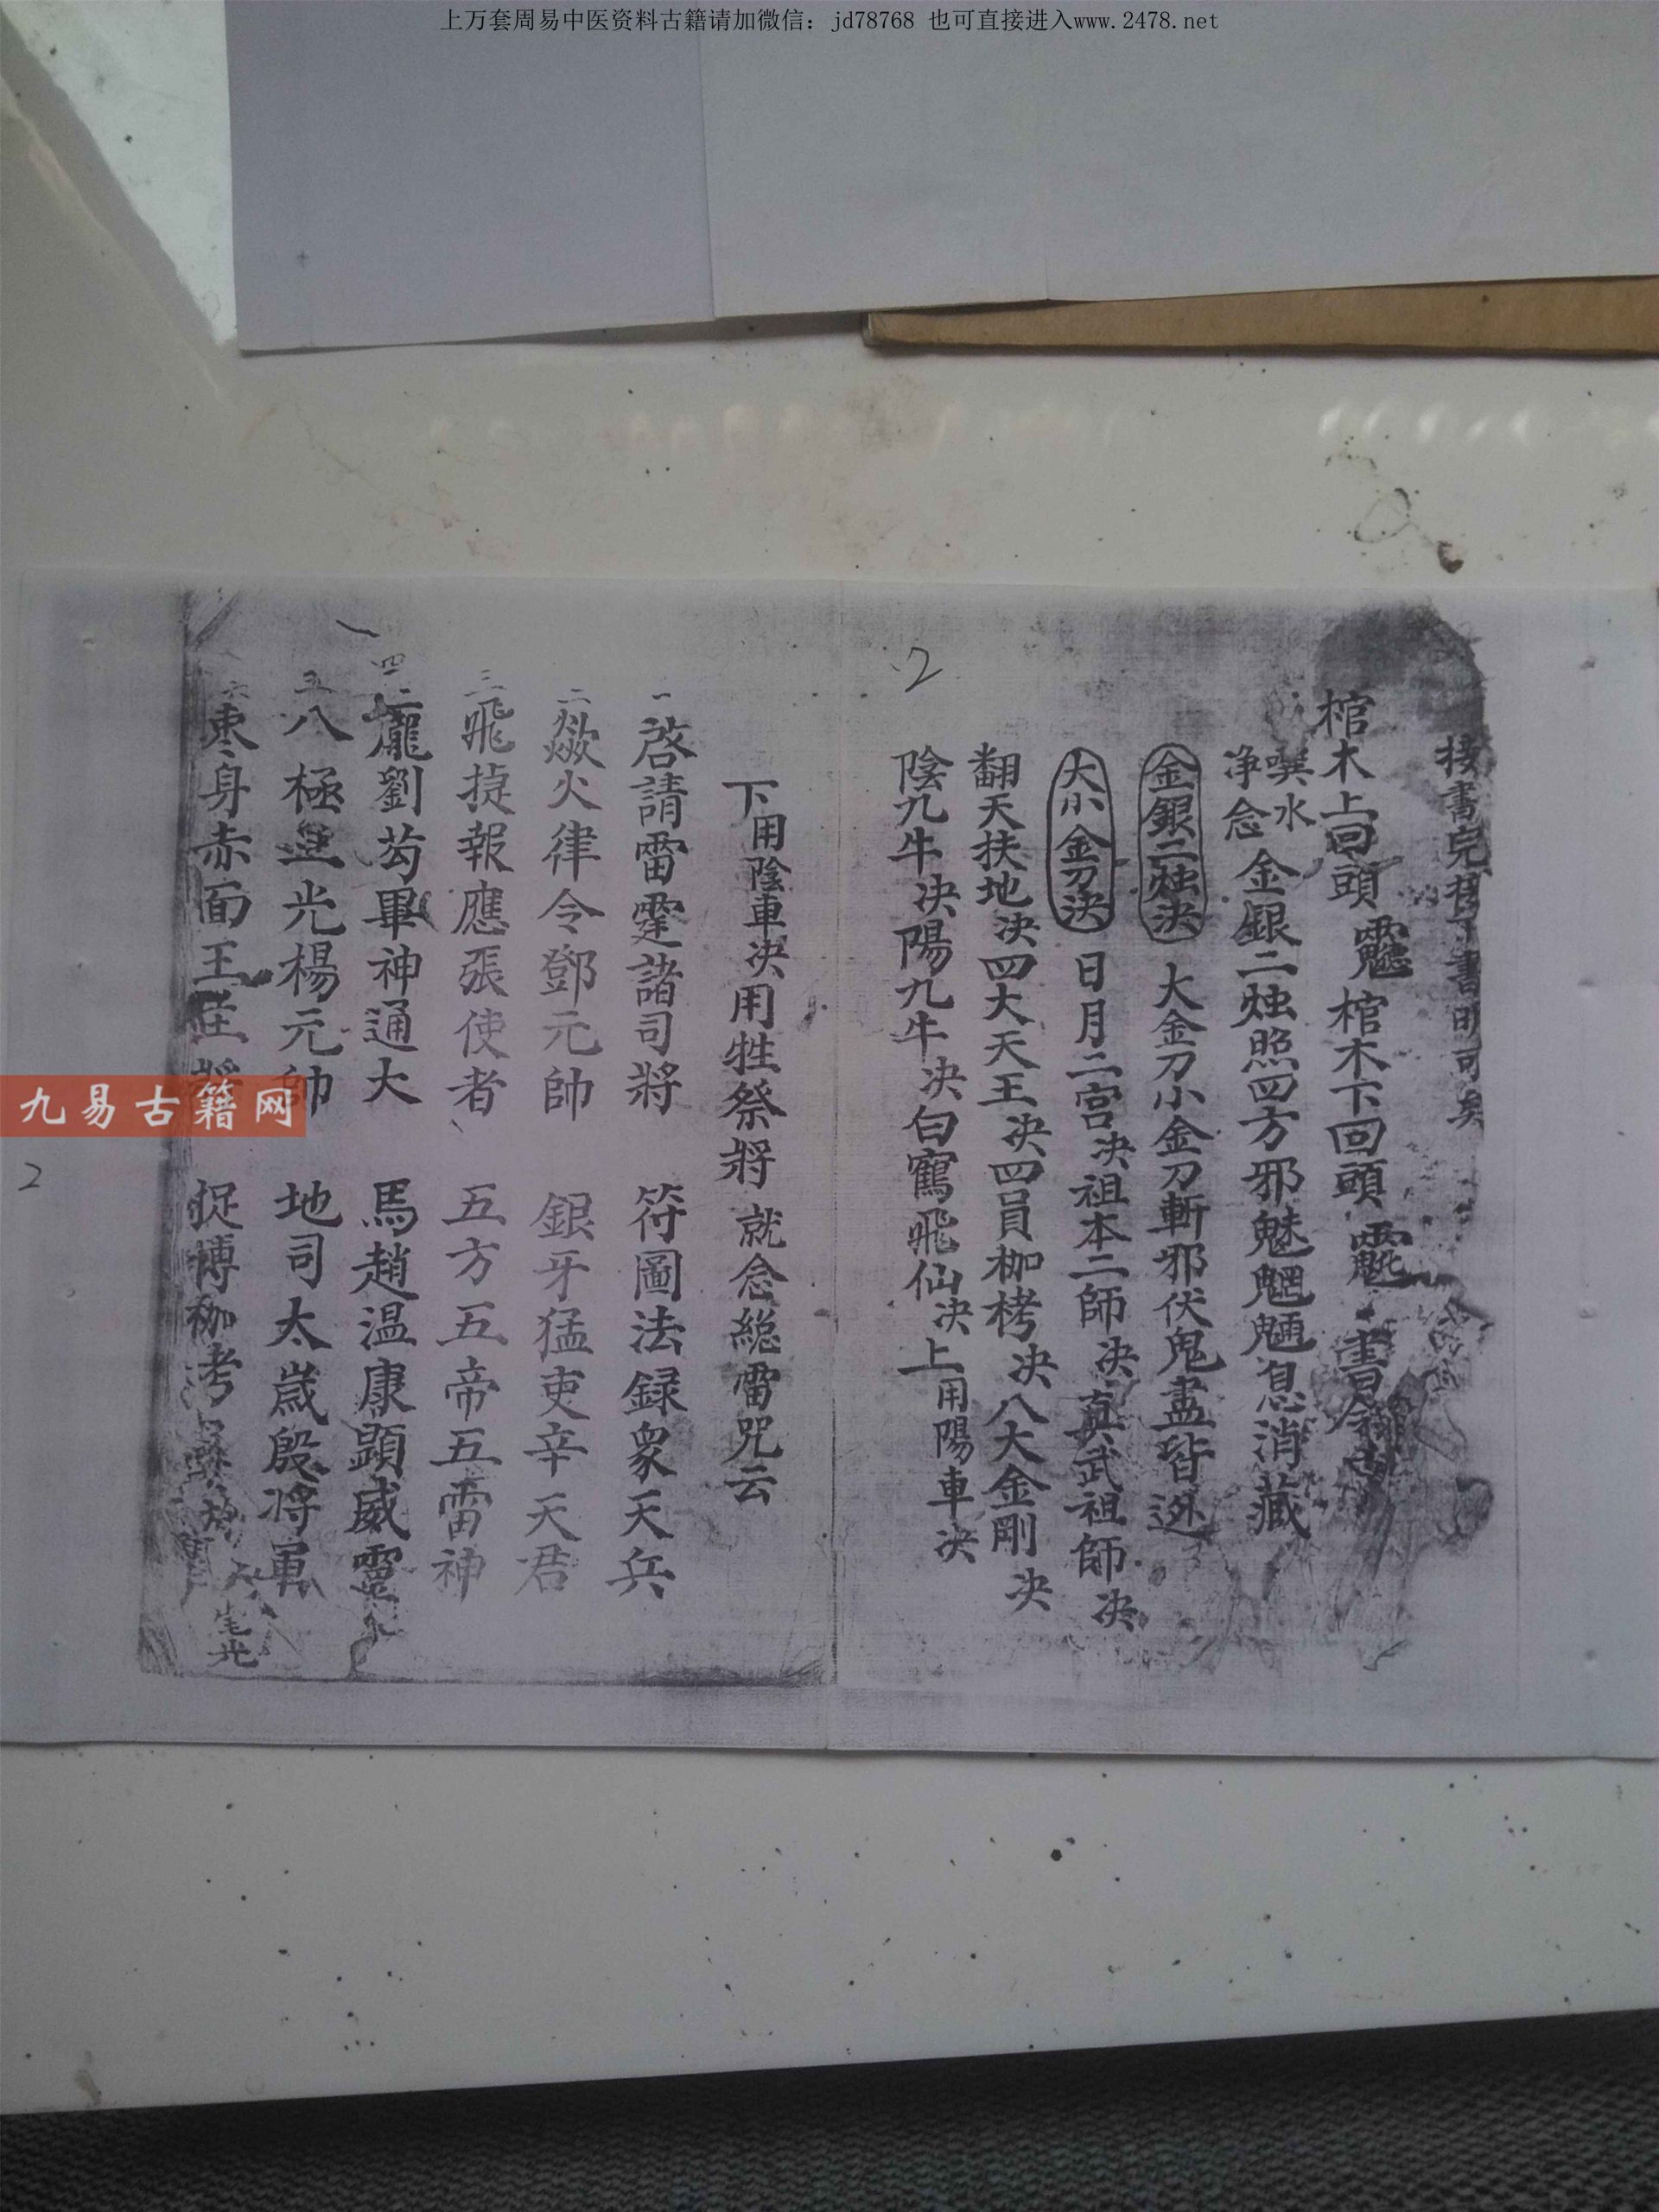 上万套周易中医资料古籍请加微信：jd78768 也可直接进入www.2478.net
2
接書完接下書明可矣
棺木上回頭 棺木下回頭 書
噀水
净念
金銀二烛照四方邪魅魍魎息消藏
金銀二烛决 大金刀小金刀斬邪伏鬼盡皆迯
大小金刀决 日月二宫决祖本二師决真武祖師决
翻天扶地决四大天王决四員枷栲决八大金剛决
陰九牛决陽九牛决白鶴飛仙决上用陽車决
下用陰車决用牲祭將 就念総雷咒云
一啓請雷霆諸司將 符圖法録衆天兵
二歘火律令鄧元帥 銀牙猛吏辛天君
三飛捷報應張使者 五方五帝五雷神
四龐劉苟畢神通大 馬趙温康顕威靈
五八極 光楊元帥 地司太歲殷将軍
六 身赤面王 將 捉 枷考
九易古籍网
2